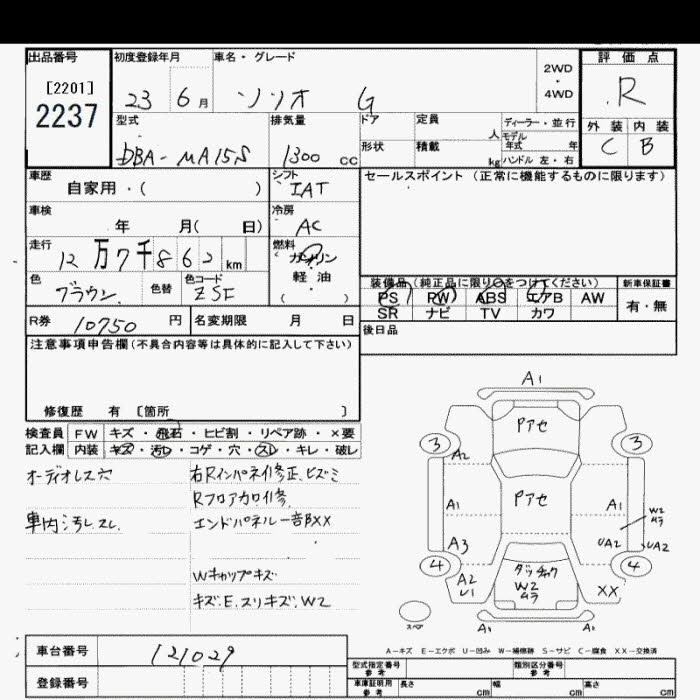 出品番号 初度登録年月 車名・グレード 評価点
[2201]
2237
23 6月 ソリオ G 2WD・4WD R
型式 排気量 ドア 定員 人 ディーラー・並行 外装 内装
モデル年式 年
DBA-MA15S 1300cc 形状 積載 kg ハンドル 左・右 C B
車歴 シフト セールスポイント(正常に機能するものに限ります)
自家用・( ) IAT
車検 冷房
年 月( 日) AC
走行 燃料
12万7千862km ガソリン・軽油( )
色 色替 色コード 装備品(純正品に限り○をつけてください) 新車保証書
ブラウン ZSF PS PW ABS エアB AW 有・無
SR ナビ TV カワ
R券 10750円 名変期限 月 日 後日品
注意事項申告欄(不具合内容等は具体的に記入して下さい)
修復歴 有 〔箇所 〕
検査員 FW キズ・飛石・ヒビ割・リペア跡・×要
記入欄 内装 キズ・汚レ・コゲ・穴・スレ・キレ・破レ
オーディオレス穴 右Rインパネイ修正、ヒズミ
Rフロアカロイ修
車内汚レ、スレ エンドパネル一音BXX
Wキャップキズ
キズ、E、スリキズ、W2
A1
Pアセ
3 3
A2
Pアセ
A1 A1
W2ムラ
A3 UA2 UA2
4 4
A2 U1 ダッチャク W2ムラ XX
スペア A2 A2
A-キズ E-エクボ U-凹み W-補修跡 S-サビ C-腐食 XX-交換済
車台番号 121029
型式指定番号 参考 類別区分番号 参考
登録番号 車庫証明用 参考 長さ cm 幅 cm 高さ cm